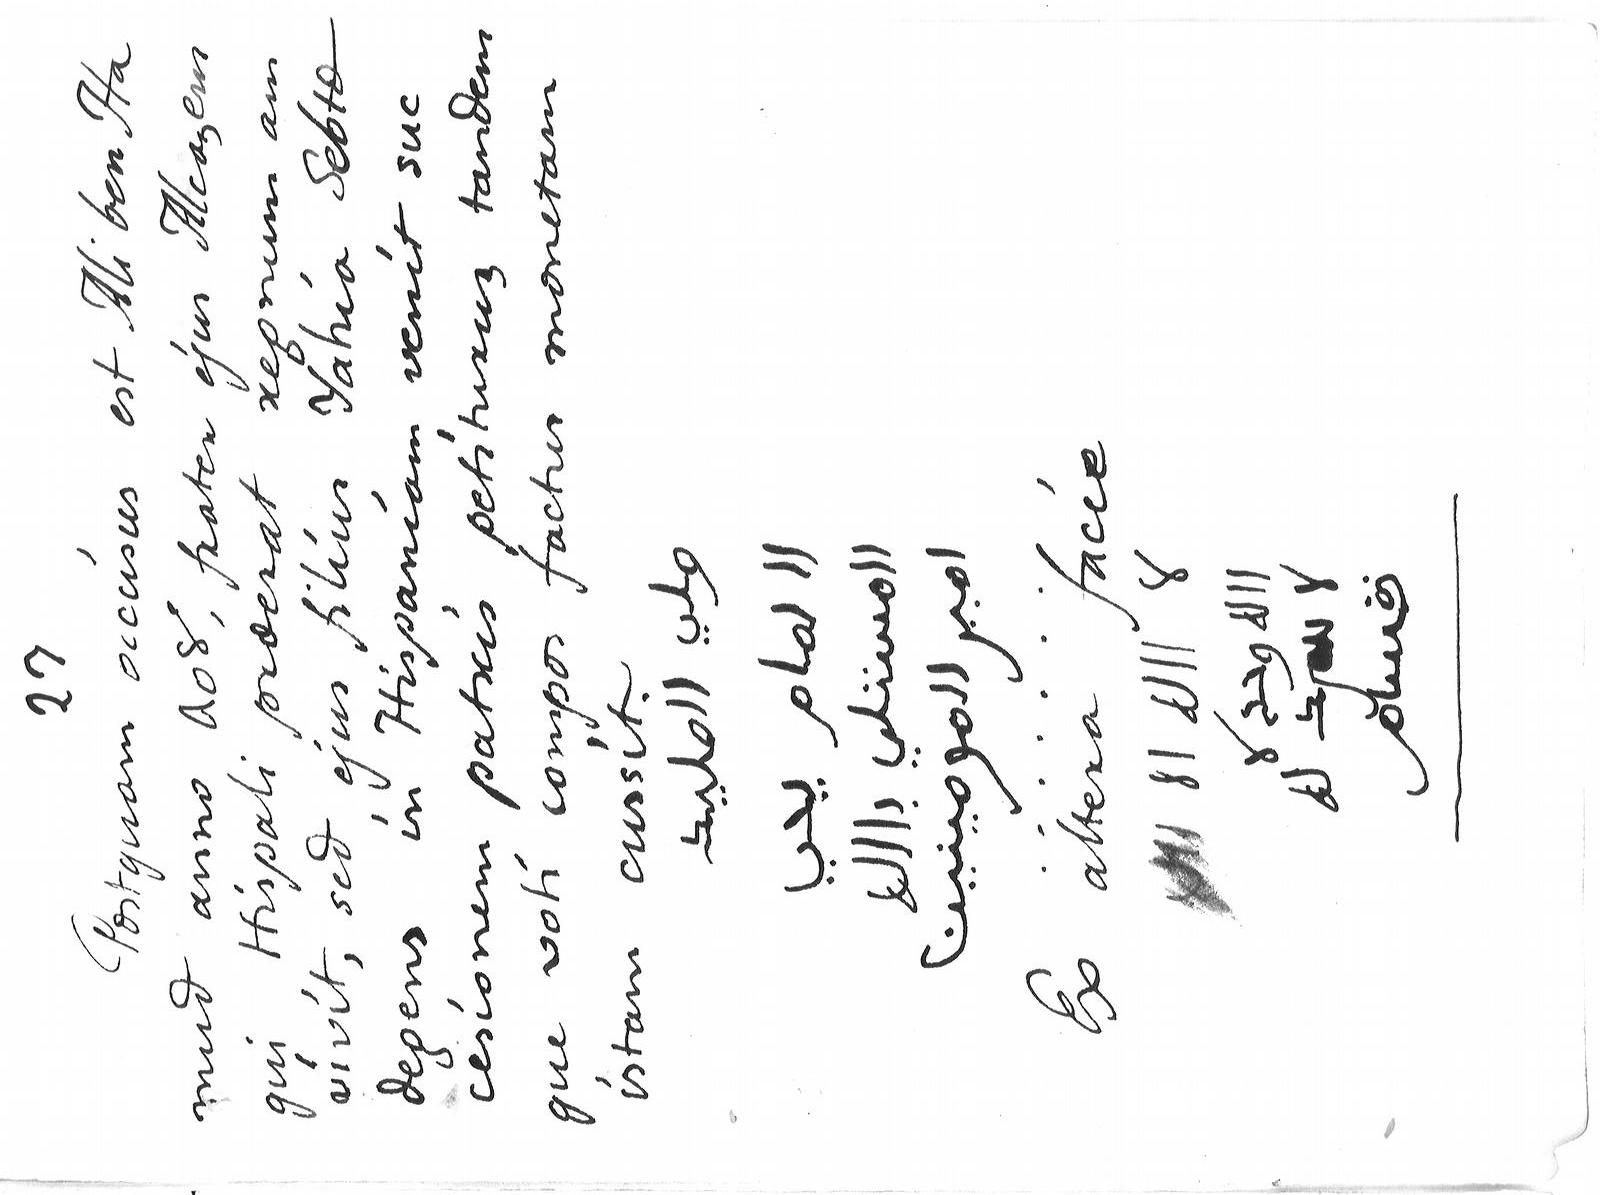 27
Postquam occisus est Ali ben Ha
mud anno 408, frater ejus Alcazem
qui Hispali præerat regnum am
vivit, sed ejus filius Yahia Sebtæ
degens in Hispaniam venit suc
cesionem patris petiturus tandem
que voti compos factus monetam
istam cussit.
ولي العهد
الامام يحيي
المعتلي بالله
امير المومنين
. . . . . .
Ex altera facie
لا اله الا الله
الله وحده لا
لا شريك له
قسام